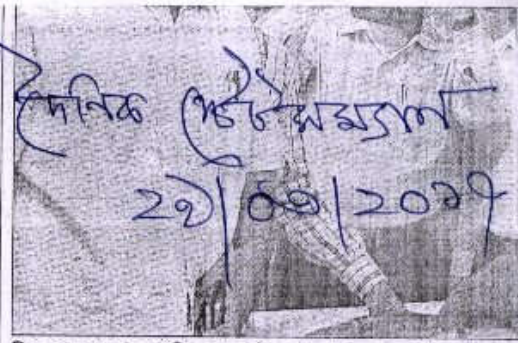 দৈনিক স্টেটসম্যান
২১/০৩/২০১৭